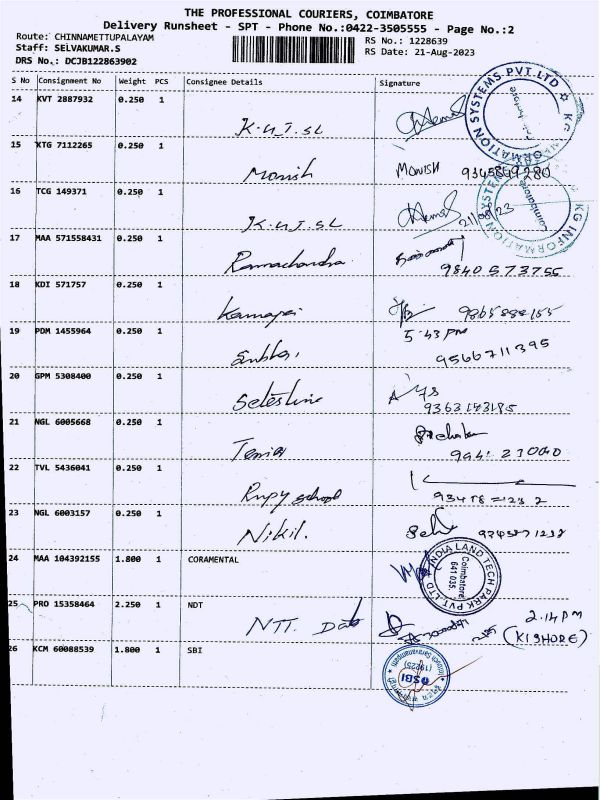 THE PROFESSIONAL COURIERS, COIMBATORE
Delivery Runsheet - SPT - Phone No.:0422-3505555 - Page No.:2
Route: CHINNAMETTUPALAYAM RS No.: 1228639
Staff: SELVAKUMAR.S RS Date: 21-Aug-2023
DRS No.: DCJB122863902
S No Consignment No Weight PCS Consignee Details Signature
14 KVT 2887932 0.250 1
K.U.T.SL
KG INFORMATION SYSTEMS PVT.LTD
Coimbatore
15 KTG 7112265 0.250 1
Monish MONISH 9345849280
16 TCG 149371 0.250 1
K.U.T.SL 21/08/23
KG INFORMATION SYSTEMS
Coimbatore
17 MAA 571558431 0.250 1
Ramachandra 9840573755
18 KDI 571757 0.250 1
19 PDM 1455964 0.250 1
5.43 PM
9566711395
20 GPM 5308400 0.250 1
9363143185
21 NGL 6005668 0.250 1
22 TVL 5436041 0.250 1
23 NGL 6003157 0.250 1
Nikil.
24 MAA 104392155 1.800 1 CORAMENTAL
INDIA LAND TECH PARK PVT LTD
Coimbatore
641 035
25 PRO 15358464 2.250 1 NDT
NTT. Data
2.14 PM
(KISHORE)
26 KCM 60088539 1.800 1 SBI
SBI
(19225)